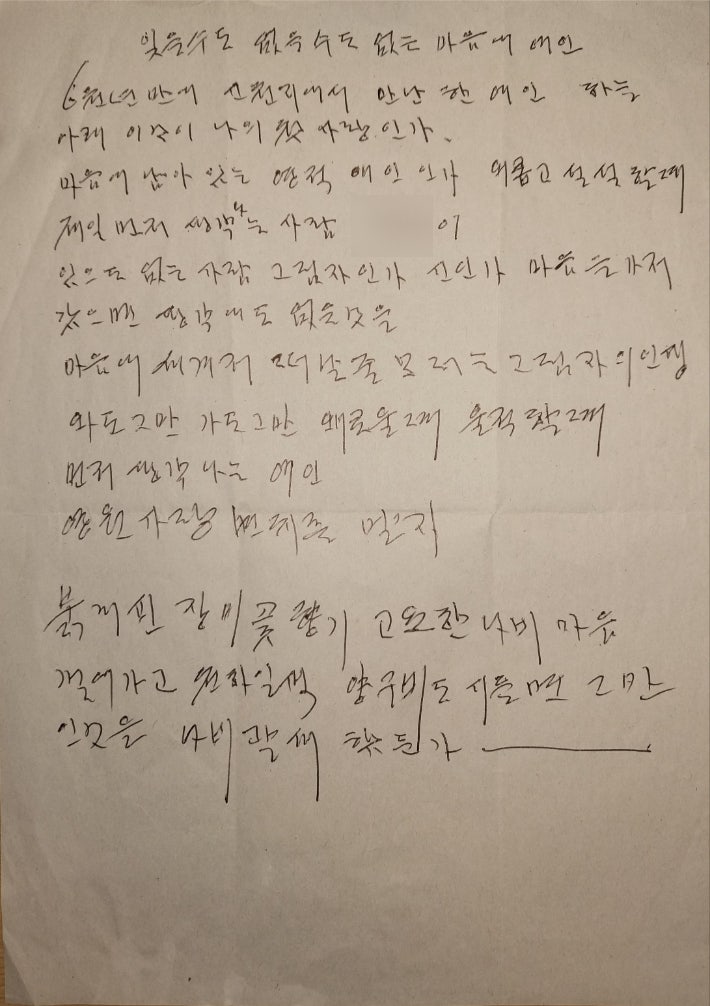 잊을수도 없을수도 없는 마음에 애인
6천년만에 신천지에서 만난 한 애인 하늘
아래 이것이 나의 첫 사랑인가.
마음에 남아 있는 영적 애인 인가 외롭고 설설할때
제일 먼저 생각나는 사람 이
있으도 없는 사람 그림자인가 신인가 마음을가저
갔으면 생각에도 없을것을
마음에 세게저 떠날줄 모르는 그림자의인생
와도그만 가도그만 왜로울때 울적할때
먼저 생각나는 애인
영원 사랑 변치를 말자
붉게핀 장미꽃향기 고요한나비 마음
걸어가고 천하일색 양구비도 시들면 그만
인것을 나비괄세 햇든가